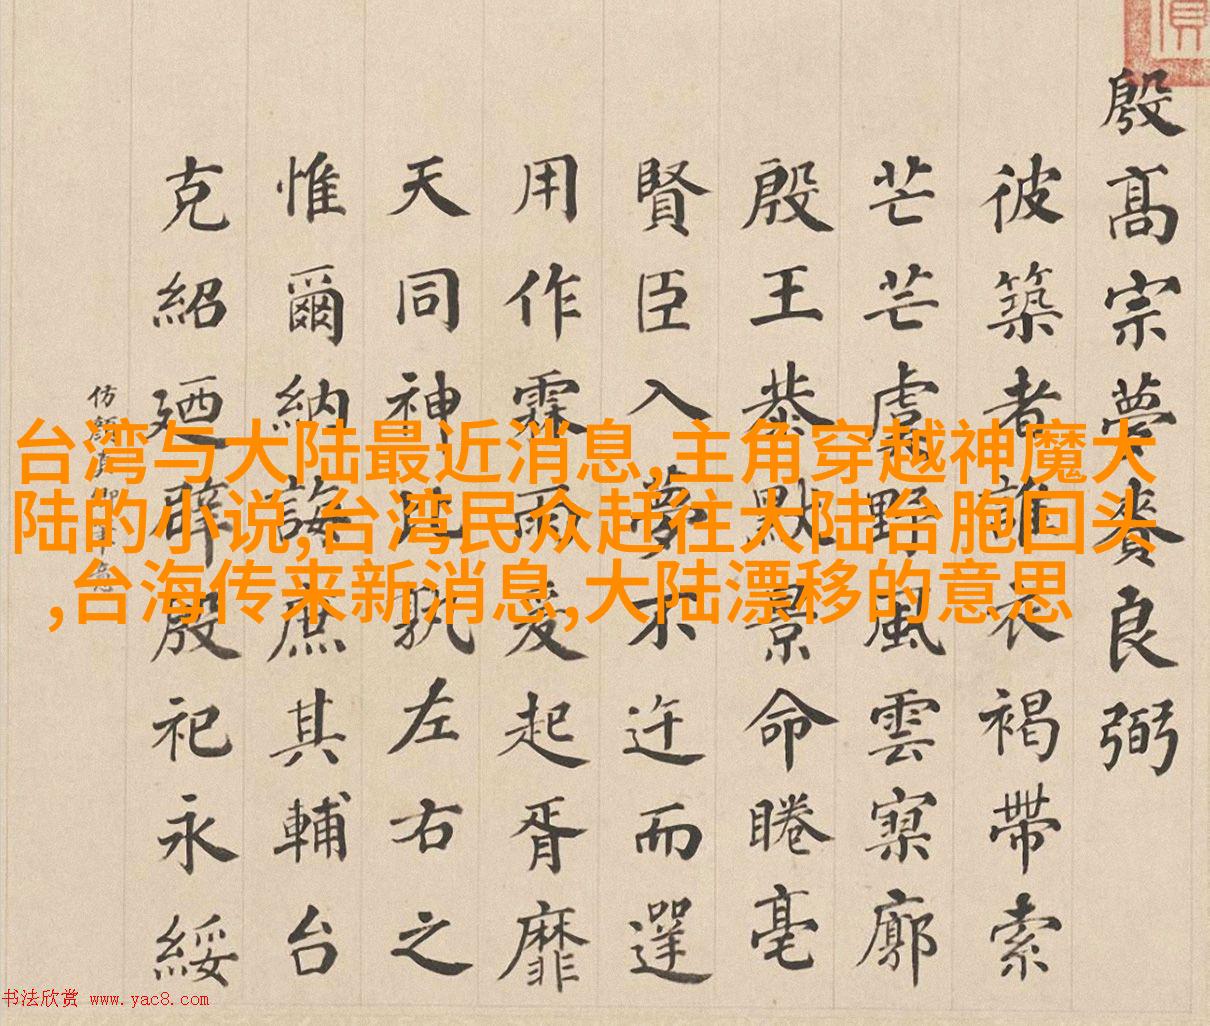 殷髙宗夢賚良弼
彼築者誰衣褐帶索
芒芒虛野風雲寥廓
殷王恭默景命睠亳
賢臣入夢不迕而遻
用作霖雨爰起胥靡
天同神比孰左右之
惟爾納誨庶其輔台
克紹廼辟殷祀永綏
仿顏真卿筆意
台湾与大陆最近消息,主角穿越神魔大
陆的小说,台湾民众赶往大陆台胞回头
,台海传来新消息,大陆漂移的意思
书法欣赏 www.yac8.com